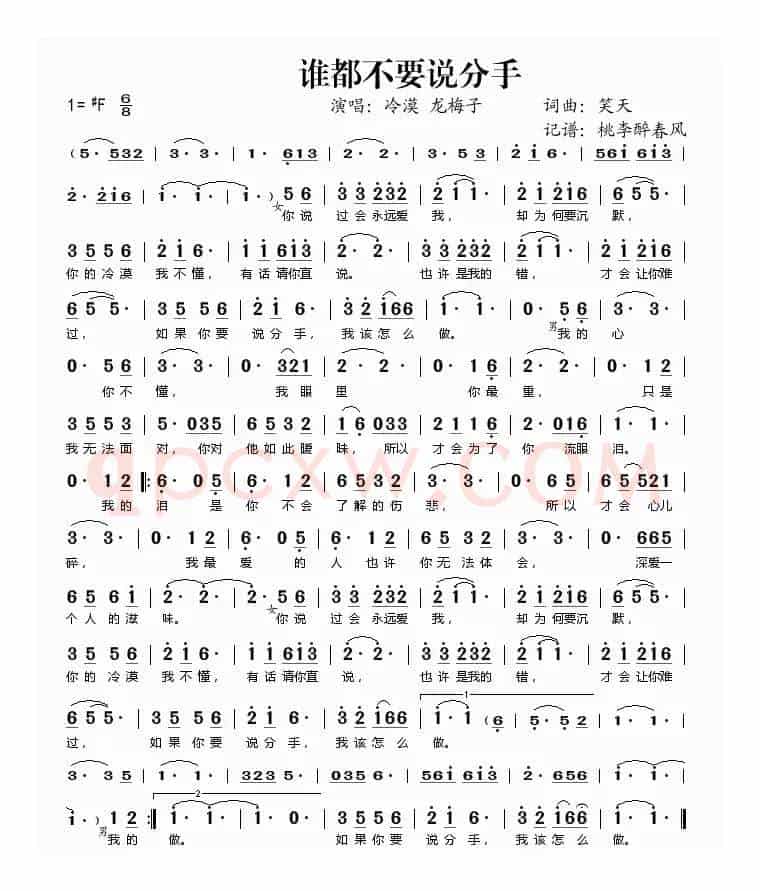 谁都不要说分手
1=♯F 6/8 演唱：冷漠 龙梅子 词曲：笑天
记谱：桃李醉春风
(5· 532 | 3· 3· | 1· 613 | 2· 2· | 3· 53 | 2· 16 | 561 613 |
2· 216 | 1· 1· | 1· ) 56 | 33 232 | 211· | 21 216 | 655· |
女 你说 过会永远爱 我， 却为何要沉 默，
35 56 | 21 6· | 11 613 | 2· 2· | 33 232 | 211· | 61 613 |
你的冷漠 我不懂， 有话请你直 说。 也许是我的 错， 才会让你难
655· | 35 56 | 21 6· | 32 166 | 1· 1· | 0· 56 | 3· 3· |
过， 如果你要 说分手， 我该怎么 做。 男 我的 心
0· 56 | 3· 3· | 0· 321 | 2· 2· | 0· 16 | 2· 2· | 0· 12 |
你不 懂， 我眼 里 你最 重， 只是
35 53 | 5· 035 | 65 32 | 16 033 | 21 16 | 2· 016 | 1· 1· |
我无法面 对，你对 他如此暧 昧，所以 才会为了 你 流眼 泪。
0· 12 |: 6· 05 | 6· 12 | 65 35 | 3· 3· | 0· 65 | 65 65 |
我的 泪 是 你 不会 了解的伤 悲， 所以 才会心儿
3· 3· | 0· 12 | 6· 05 | 6· 12 | 65 32 | 3· 3· | 0· 665 |
碎， 我最 爱 的 人 也许 你无法体 会， 深爱一
65 61 | 2· 2· | 2· 56 | 33 232 | 211· | 21 216 | 655· |
个人的滋 味。 女 你说 过会永远爱 我， 却为何要沉 默，
35 56 | 21 6· | 11 613 | 2· 2· | 33 232 | 211· | 61 613 |
你的冷漠 我不懂， 有话请你直 说， 也许是我的 错， 才会让你难
655· | 35 56 | 21 6· | 32 166 | 1 1· 1· (6 | 5· 52 |
过， 如果你要 说分手， 我该怎么 做。
3· 35 | 1· 1· | 323 5· | 035 6· | 561 613 | 2· 656 | 1· 1· |
1· ) 12 :| 2 1· 1· | 1· 0· | 35 56 | 21 6· | 32 166 | 1· 1· ‖
男 我的 做。 如果你要 说分手， 我该怎么 做。
qpcxw.com